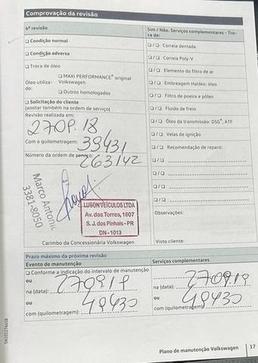 Comprovação da revisão
6ª revisão
Sim / Não. Serviços complementares - Tro-
ca de:
Condição normal
Condição adversa
Troca de óleo
MAXI PERFORMANCE® original
Óleo utiliza-
do:
Volkswagen
Outros homologados
Solicitação do cliente
(anotar também na ordem de serviço)
Revisão realizada em:
270918
Com a quilometragem: 39431
Número da ordem de serviço: 263142
Correia dentada
Correia Poly-V
Elemento do filtro de ar
Embreagem Haldex: óleo
Filtro de poeira e pólen
Fluido de freio
Óleo da transmissão: DSG®, ATF
Velas de ignição
Recomendação de reparo:
Marco Antonio
3381-8050
LUSON VEÍCULOS LTDA
Av. das Torres, 1807
S. J. dos Pinhais - PR
DN - 1013
Observações:
Carimbo da Concessionária Volkswagen
Visto cliente:
Prazo máximo da próxima revisão
Evento de manutenção
Serviços complementares
Conforme a indicação do intervalo de manutenção
ou
na (data): 270919
ou
com (quilometragem): 49430
na (data): 270919
ou
com (quilometragem): 49430
Plano de manutenção Volkswagen 17